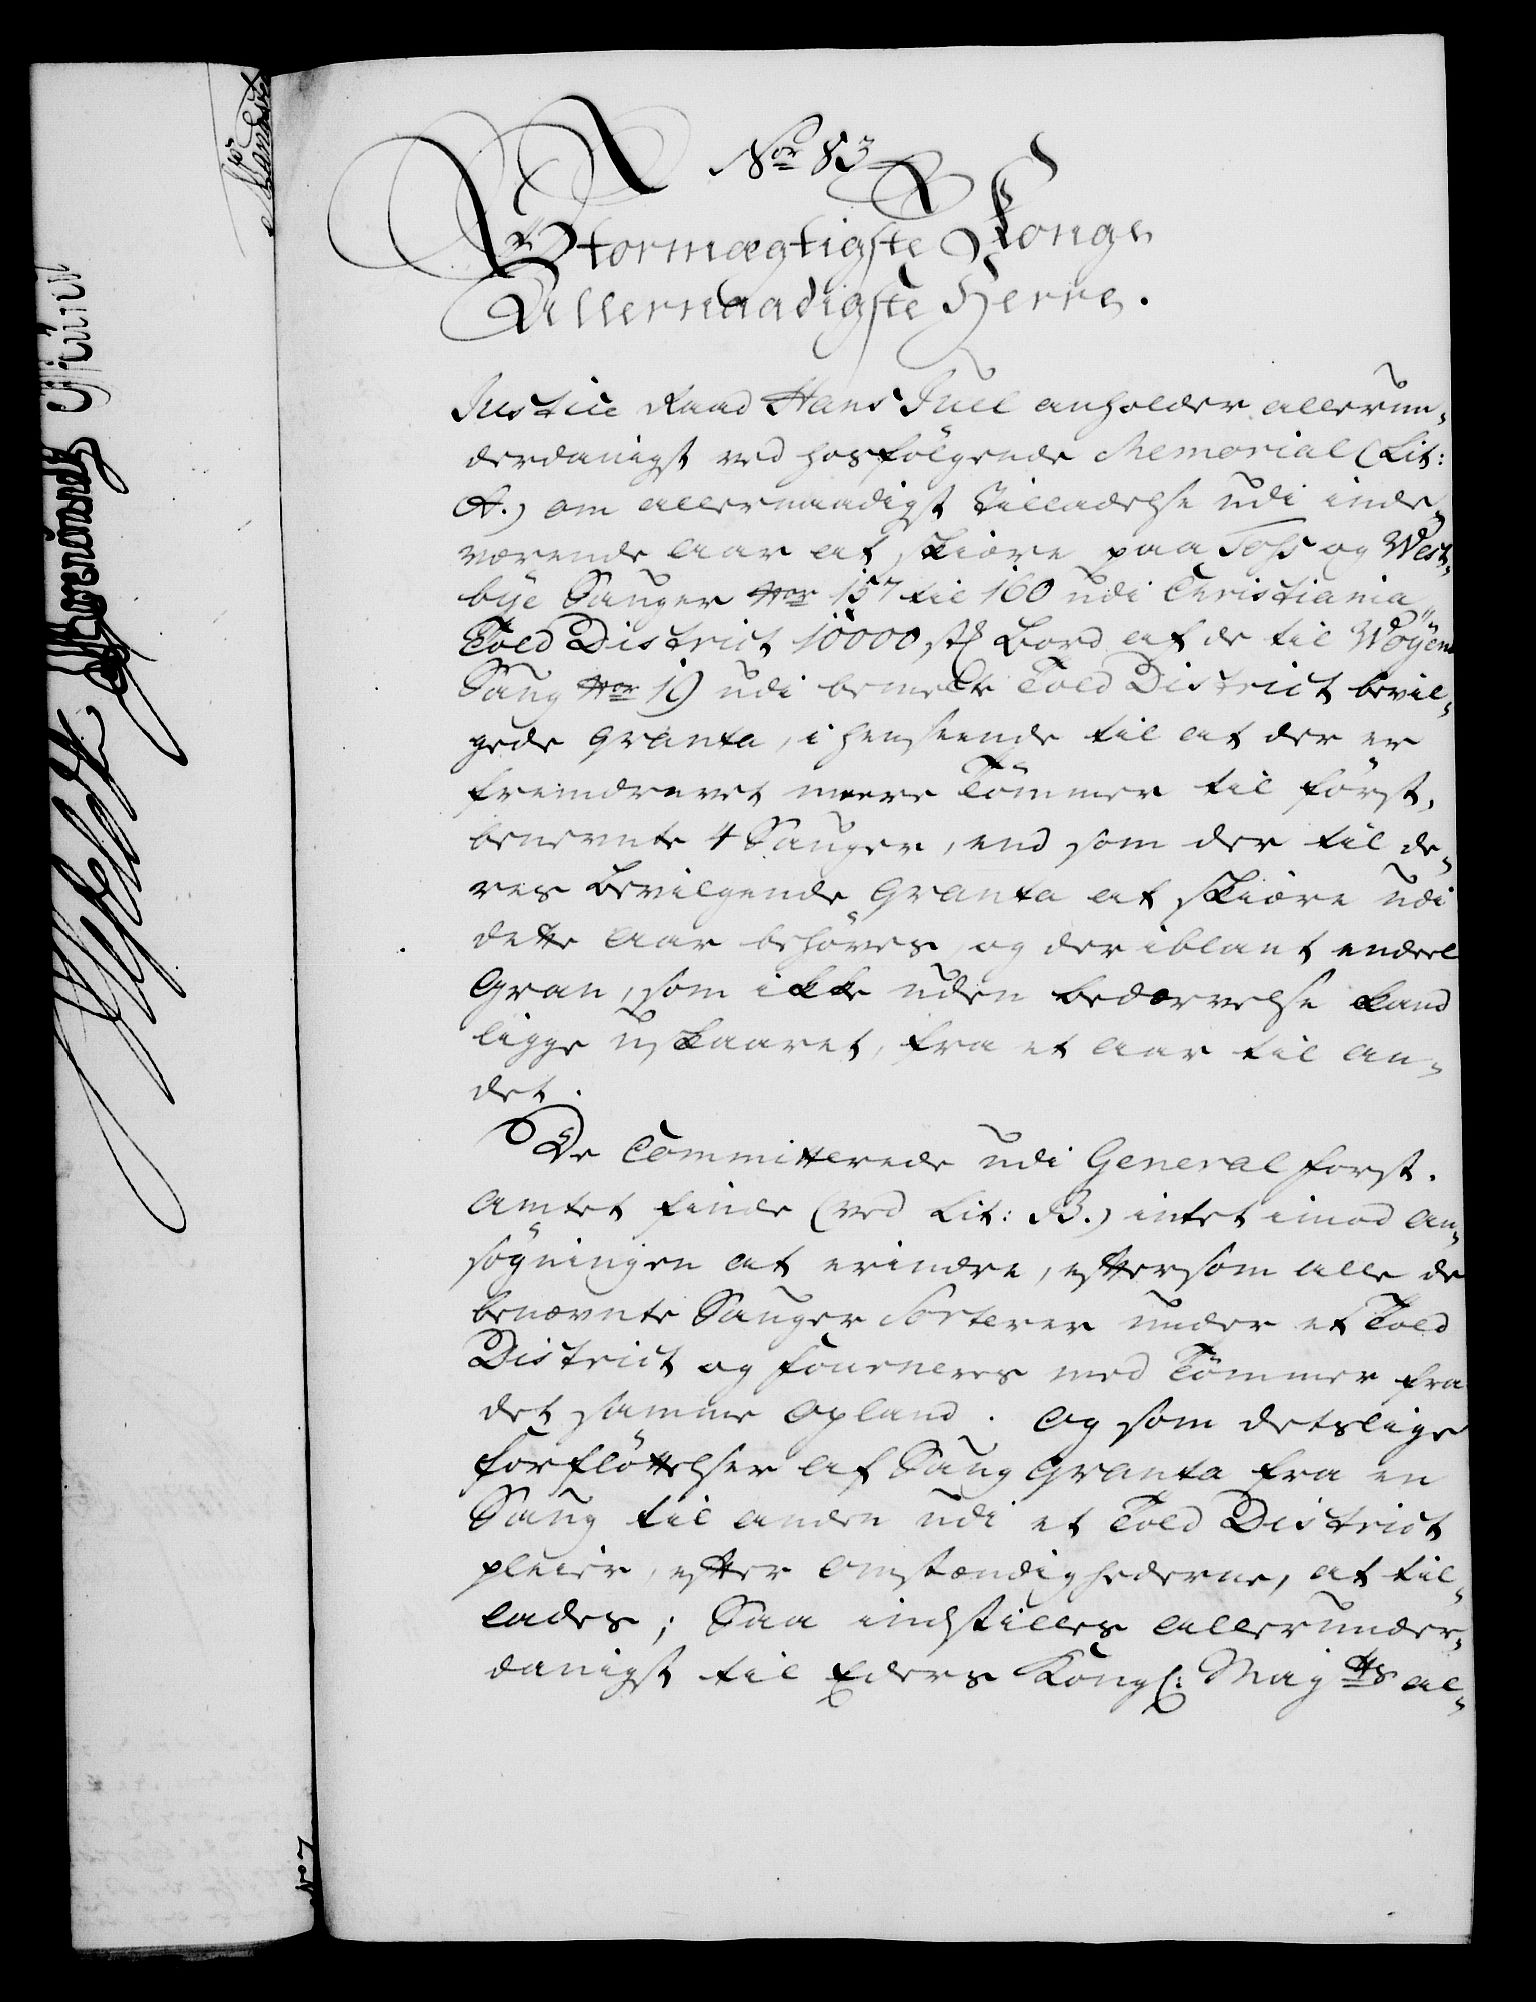 Nor 83
Stormægtigste Konge
Allernaadigste Herre.
Justice Raad Hans Juel anholder allerun-
derdanigst ved hosfølgende Memorial (Lit:
A.) om allernaadigst Tilladelse udi inde-
værende Aar at skiære paa Foss og West-
bye Sauger Nor 157 til 160 udi Christiania
Told District 10000 st Bord af de til Wøyen
Saug Nor 19 udi bemelte Told District bevil-
gede Qvanta, i henseende til at der er
fremdrevet meere Tømmer til først-
benevnte 4 Sauger, end som der til de-
res Bevilgende Qvanta at skiære udi
dette Aar behøves, og der iblant endeel
Gran, som ikke uden bedærvelse kand
ligge uskaaret, fra et Aar til an-
det.
De Committerede udi General forst-
Amtet finde (ved Lit: B.) intet imod An-
søgningen at erindre, eftersom alle de
benævnte Sauger Sorterer under et Told
District og fourneres med Tømmer fra
det samme Opland. Og som detslige
forfløttelser af Saug Qvanta fra en
Saug til anden udi et Told District
pleier, efter Omstændighederne, at til-
lades; Saa indstilles allerunder-
danigst til Eders Kongl: Mayts al-